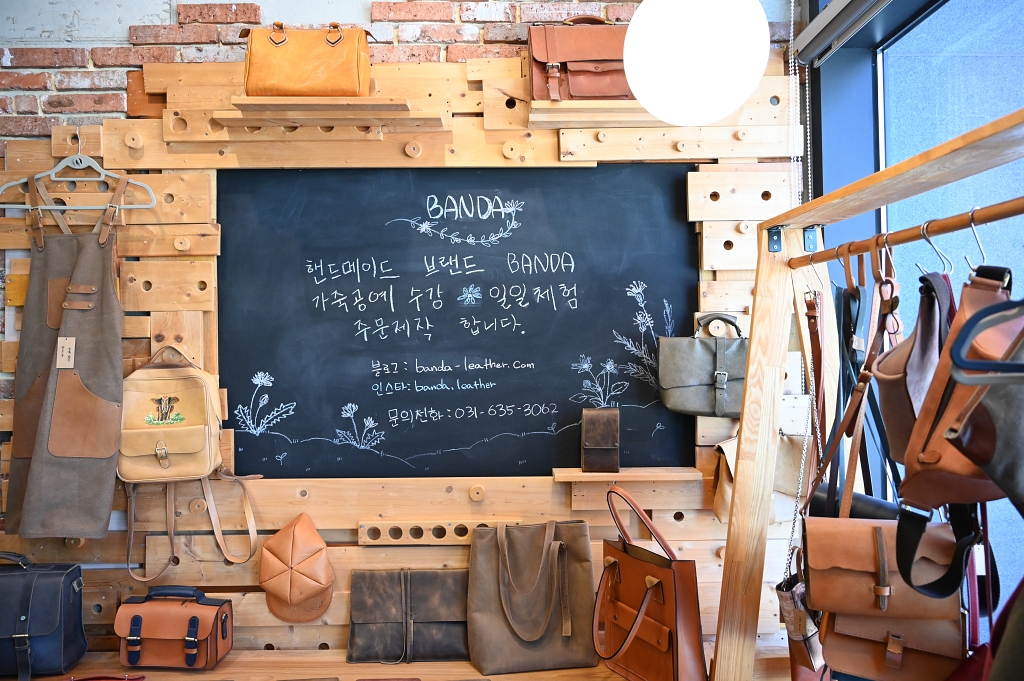 BANDA
핸드메이드 브랜드 BANDA
가죽공예 수강 일일체험
주문제작 합니다.
블로그: banda-leather.com
인스타: banda.leather
문의전화: 031-635-3062